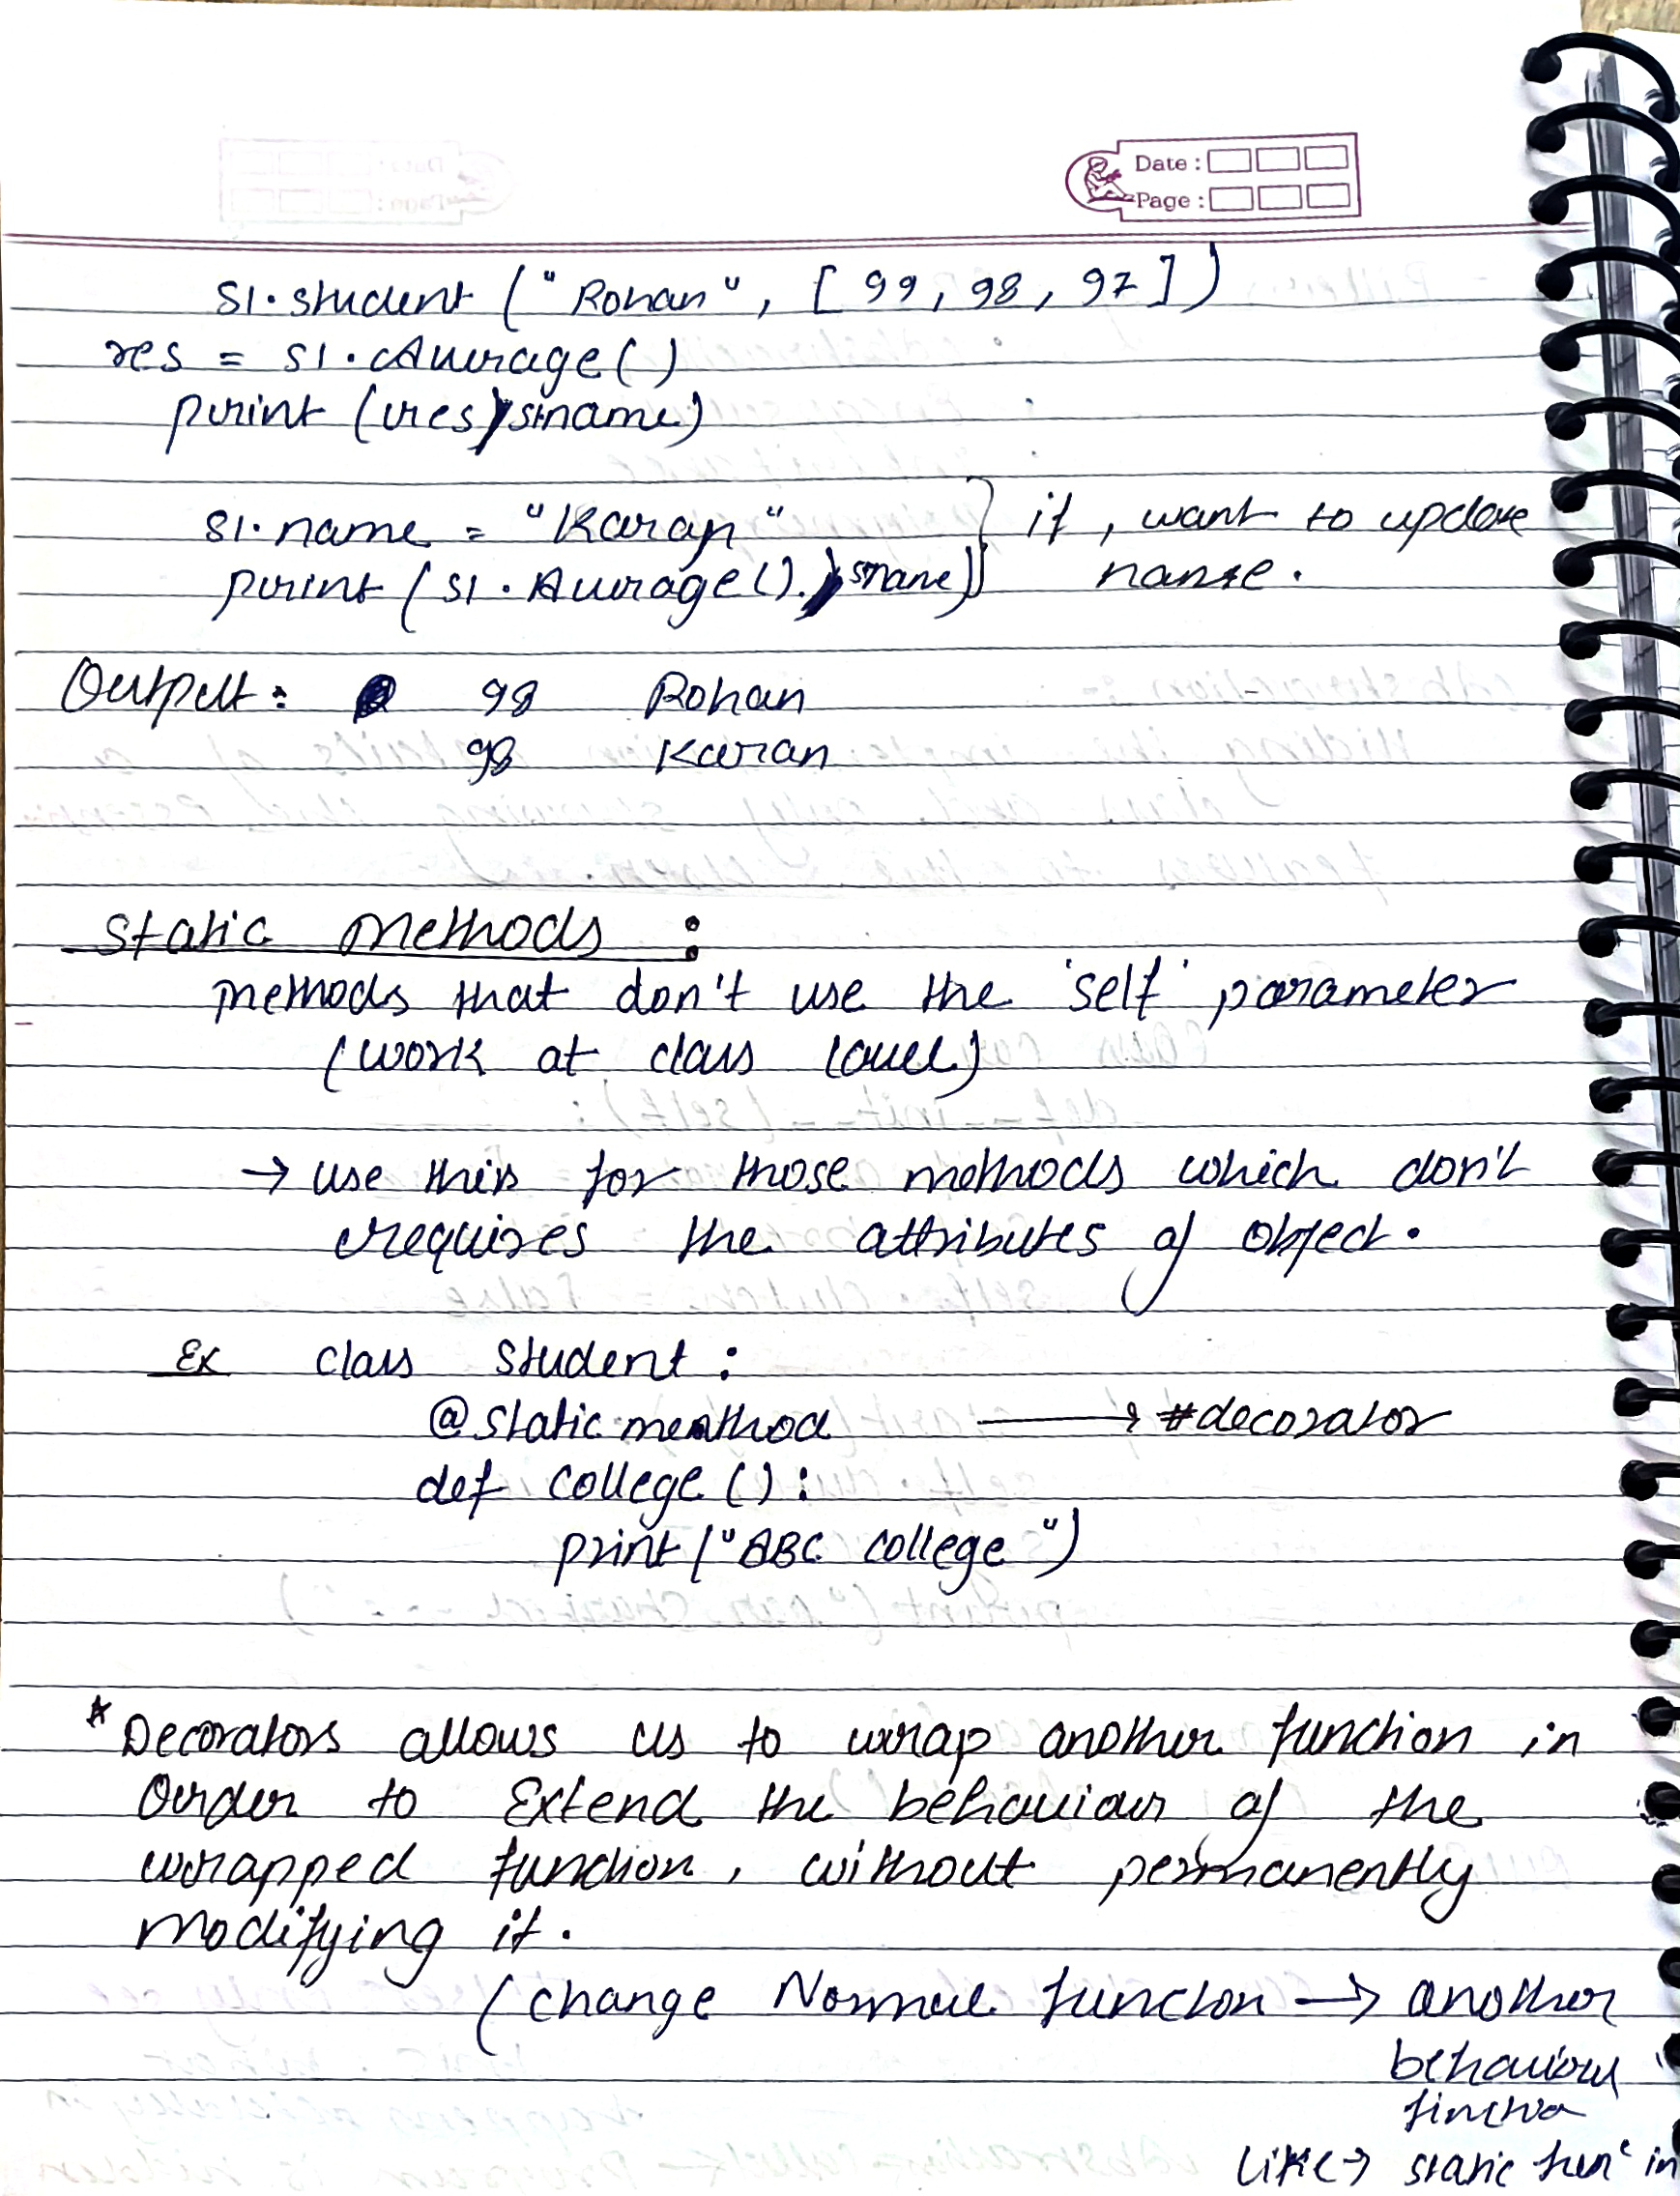 Date :
Page :
S1.student ("Rohan", [99, 98, 97])
res = S1.Average()
print (res, s1.name)
S1.name = "Karan" } if, want to update
print (S1.Average(), s1.name) } name.
Output: 98 Rohan
98 Karan
Static Methods :
methods that don't use the 'self' parameter
(work at class level)
→ use this for those methods which don't
requires the attributes of object.
Ex class Student :
@static method → #decorator
def college () :
print ("ABC college")
* Decorators allows us to wrap another function in
Order to Extend the behaviour of the
wrapped function, without permanently
modifying it.
(change Normal function → another
behaviour
function
Like → static fun^c in